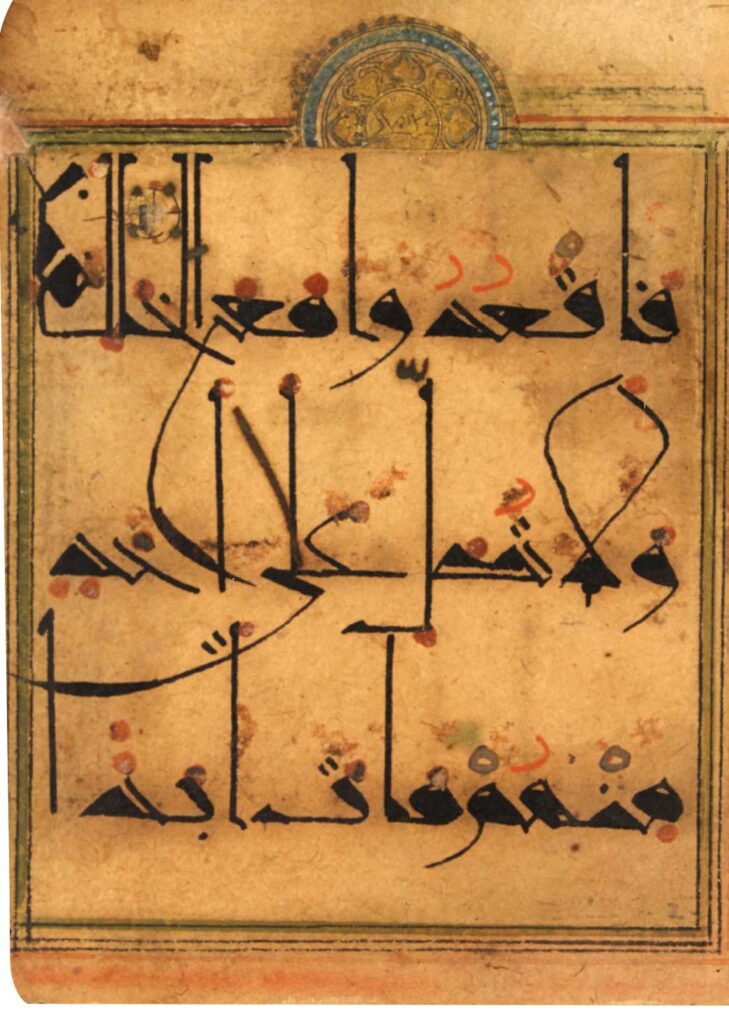 فاقعدوا مع الخلفين
ولا تصل على احد
منهم مات ابدا